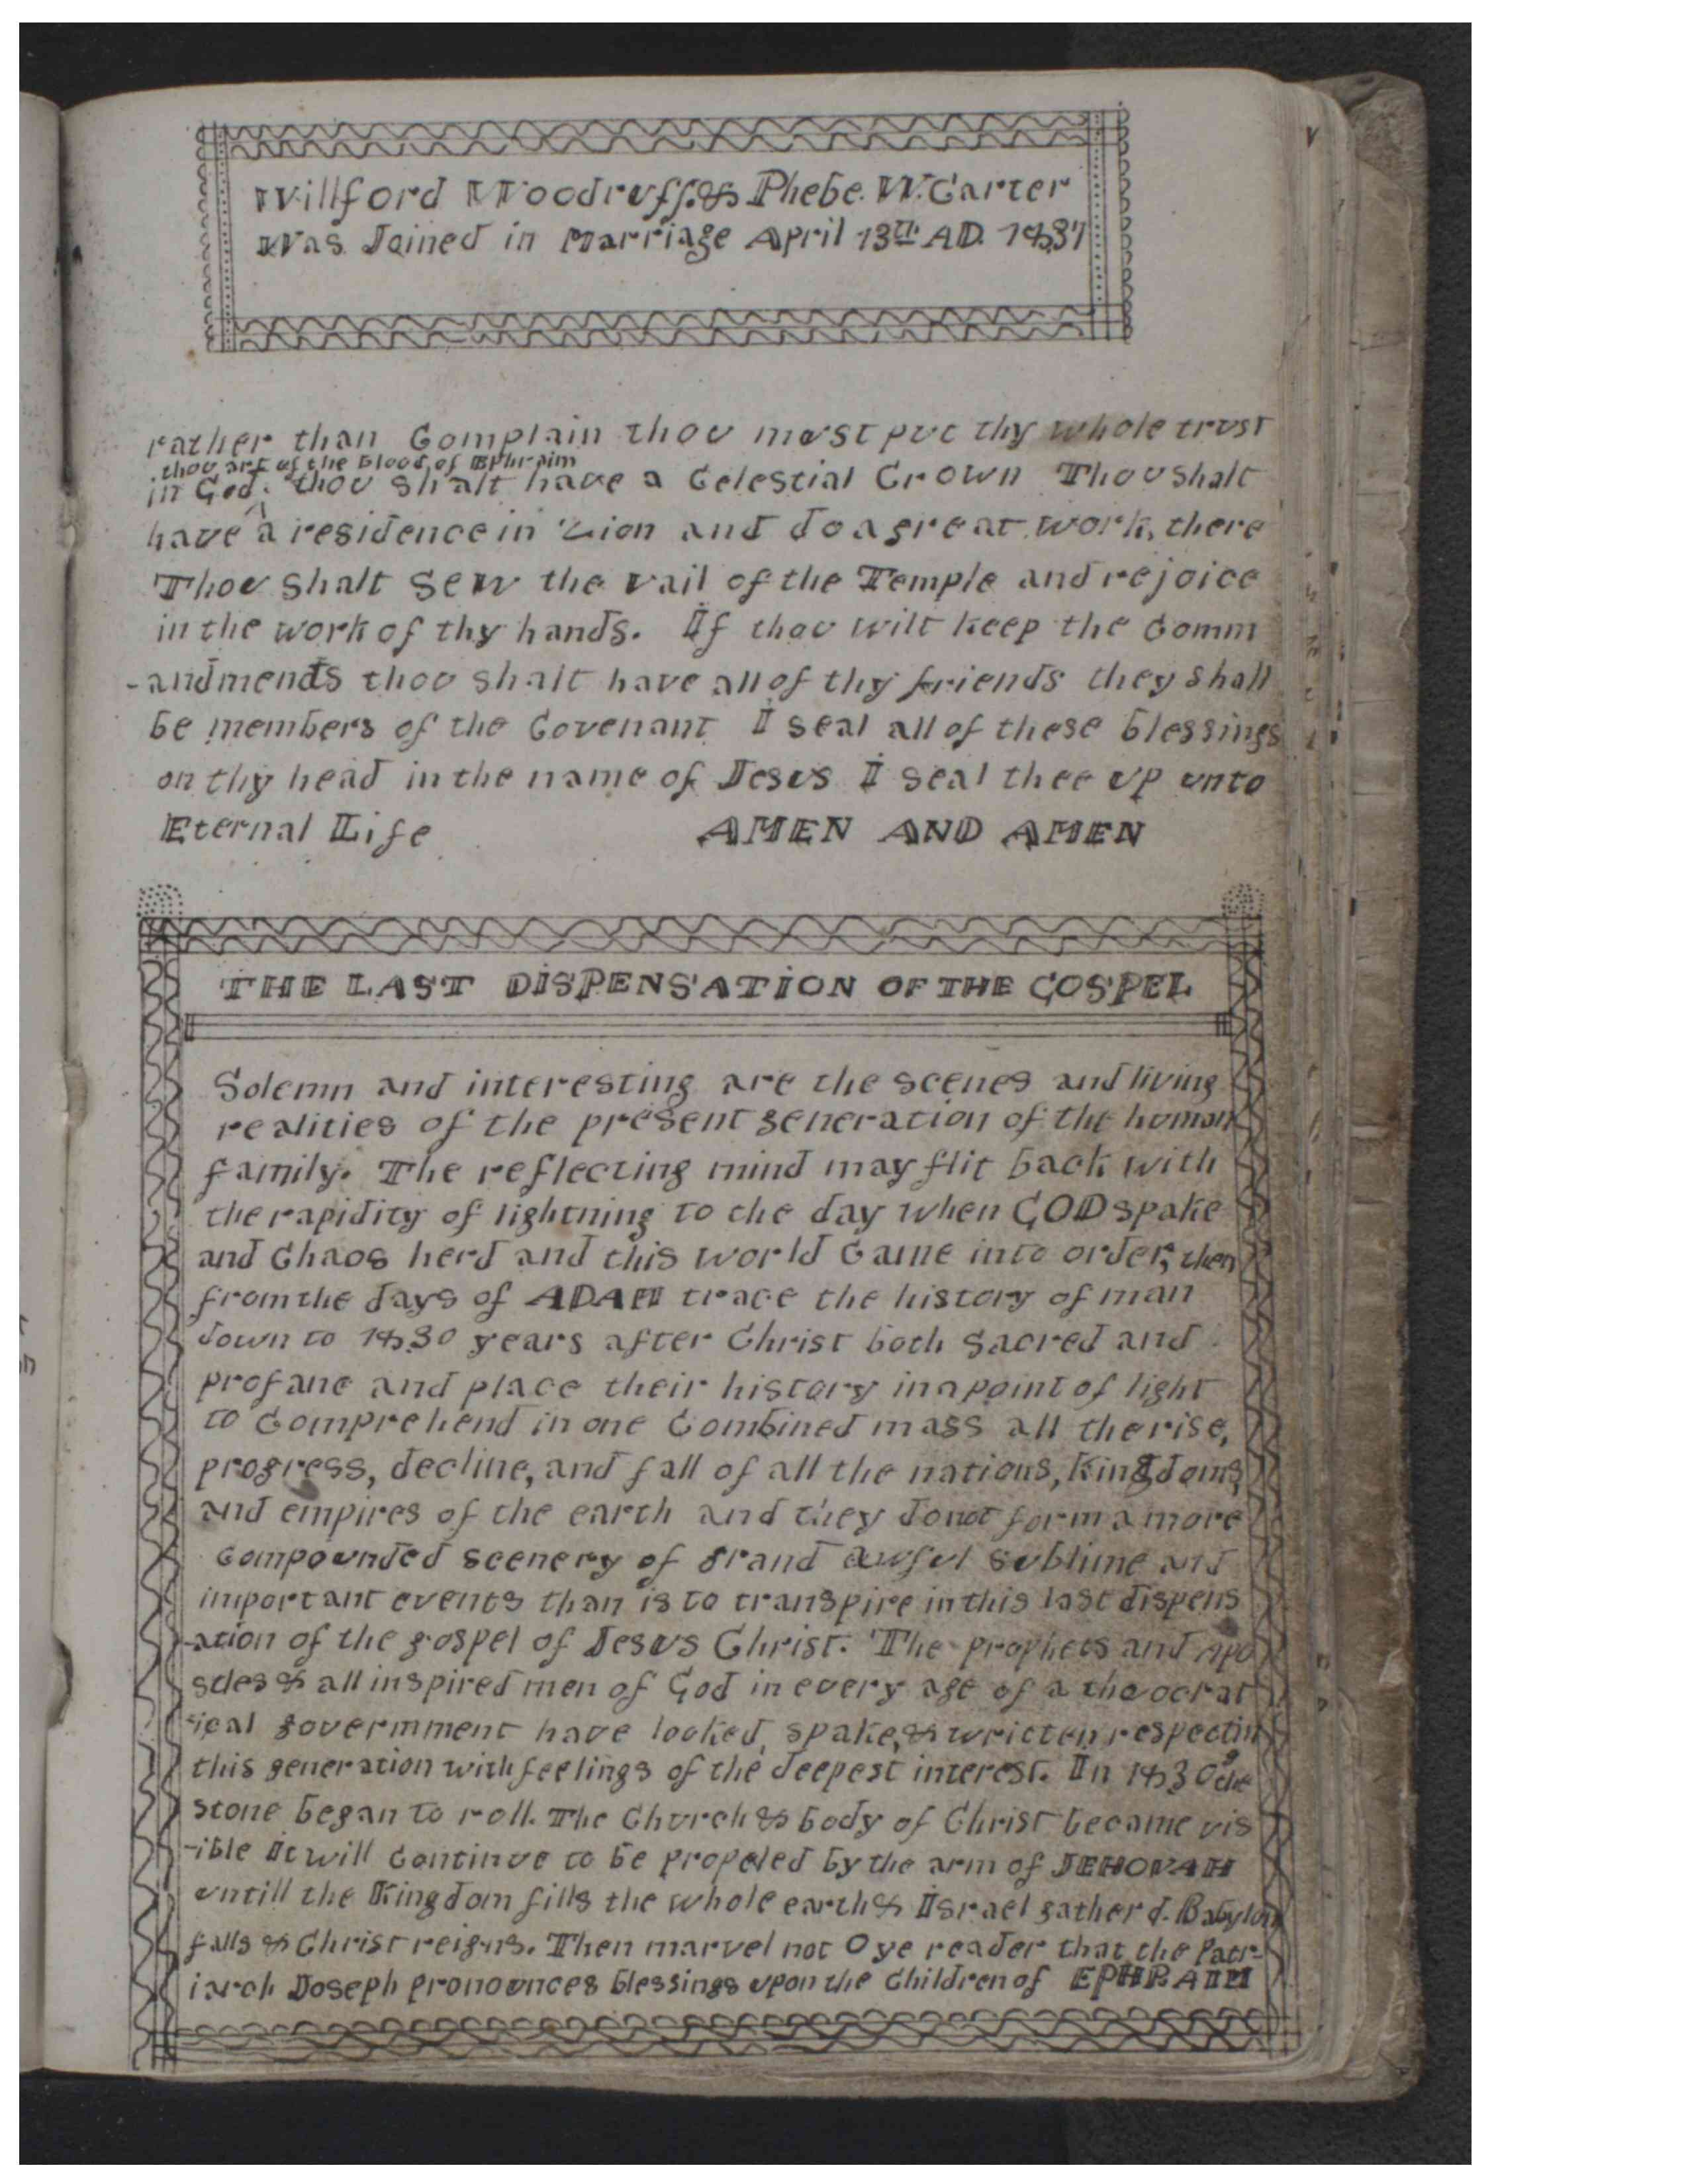 Willford Woodruff. & Phebe. W. Carter
Was Joined in Marriage April 13th AD. 1837
rather than Complain thou must put thy whole trust
thou art of the blood of Ephraim
in God. thou shalt have a Celestial Crown Thou shalt
have a residence in Zion and do a great work, there
Thou shalt sew the vail of the Temple and rejoice
in the work of thy hands. If thou wilt keep the Comm
-andments thou shalt have all of thy friends they shall
be members of the Covenant I seal all of these blessings
on thy head in the name of Jesus I seal thee up unto
Eternal Life AMEN AND AMEN
THE LAST DISPENSATION OF THE GOSPEL
Solemn and interesting are the scenes and living
realities of the present generation of the human
family. The reflecting mind may flit back with
the rapidity of lightning to the day when GOD spake
and Chaos herd and this world Came into order, then
from the days of ADAM trace the history of man
down to 1830 years after Christ both sacred and
profane and place their history in a point of light
to Comprehend in one Combined mass all the rise,
progress, decline, and fall of all the nations, Kingdoms,
and empires of the earth and they do not form a more
Compounded scenery of grand awful sublime and
important events than is to transpire in this last dispens
-ation of the gospel of Jesus Christ. The prophets and Apo
stles & all inspired men of God in every age of a theocrat
ical government have looked, spake, & written respecting
this generation with feelings of the deepest interest. In 1830 the
stone began to roll. The Church & body of Christ became vis
-ible It will Continue to be propeled by the arm of JEHOVAH
untill the Kingdom fills the whole earth & Israel gatherd. Babylon
falls & Christ reigns. Then marvel not O ye reader that the Patr-
iarch Joseph pronounces blessings upon the Children of EPHRAIM